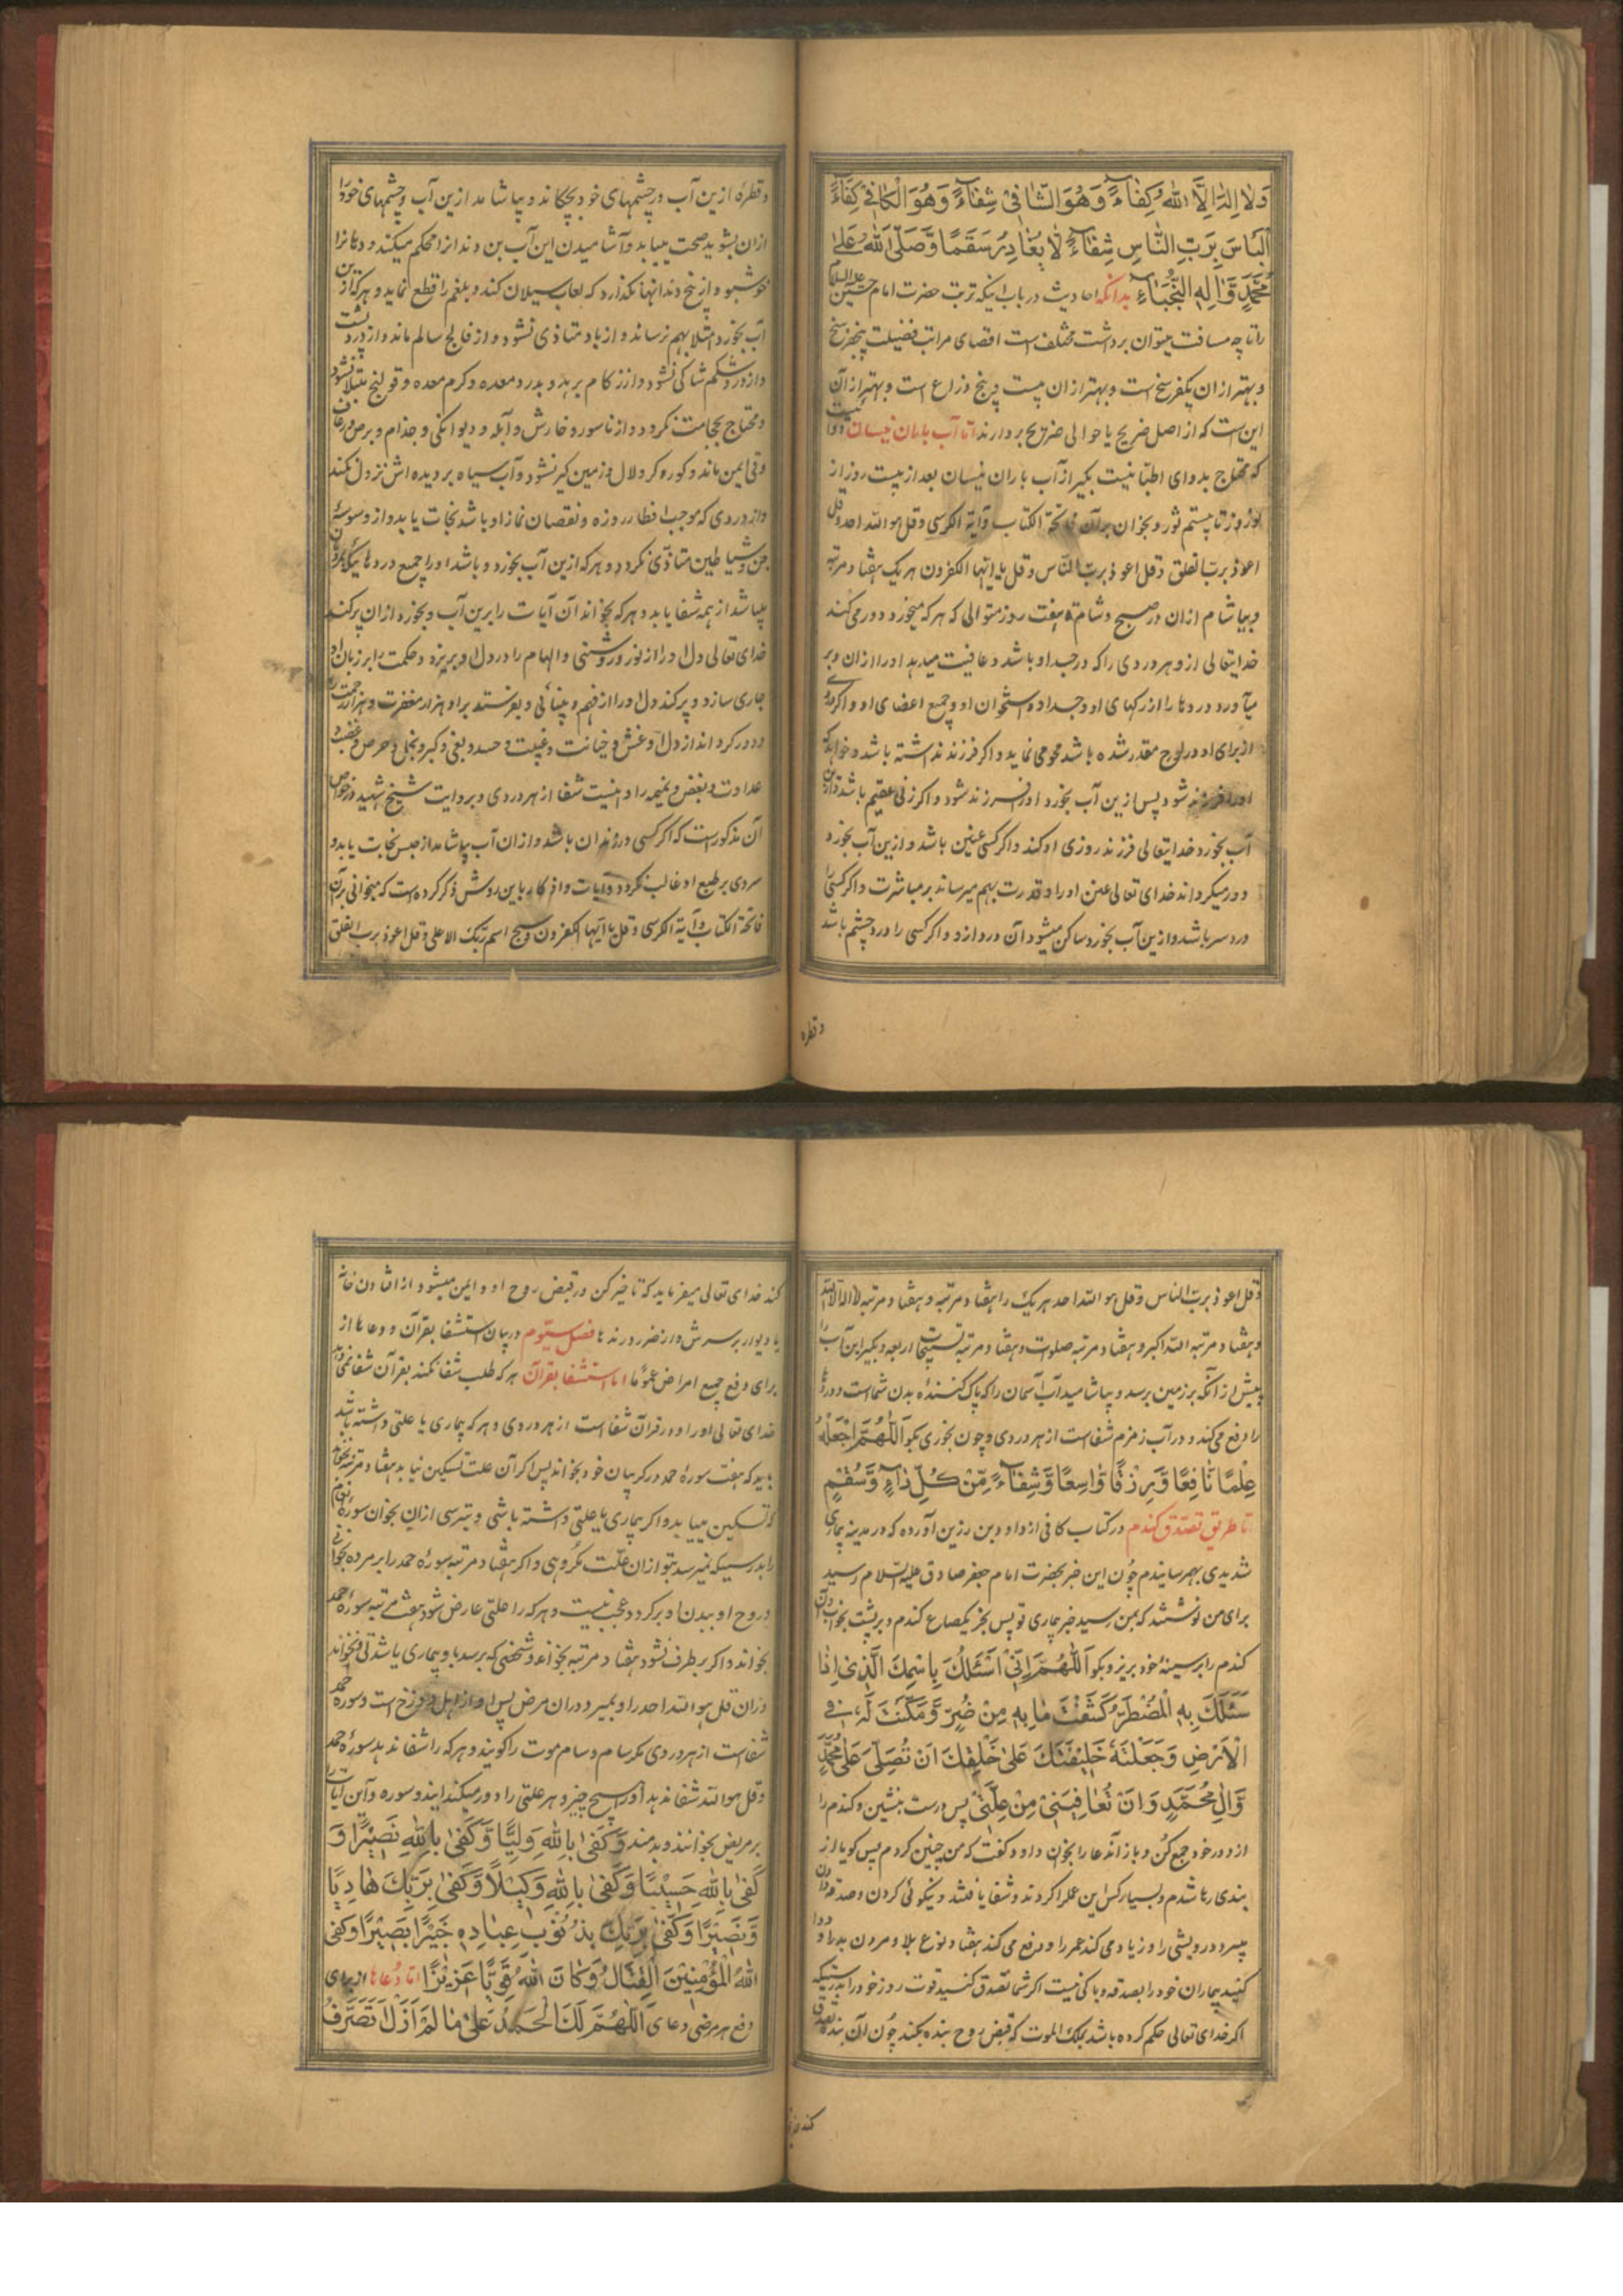 وَلا اِلهَ اِلَّا اللهُ كِفٰاءً وَهُوَ الشّافی شِفٰاءً وَهُوَ الْكافی كِفٰاءً
اَلْبَاسَ بِرَبِّ النّٰاسِ شِفٰاءً لٰا یُغٰادِرُ سَقَمًا وَصَلَّی اللهُ عَلیٰ
مُحَمَّدٍ وَاٰلِهِ النُّجَبٰاءِ بدانکه احادیث درباب اینکه تربت حضرت امام حسین علیه السلام
را تا چه مسافت میتوان برداشت مختلف است اقصای مراتب فضیلت پنجفرسخ
و بهتر از ان یکفرسخ است و بهتر از ان بیست و پنج ذراع است و بهتر از آن
این است که از اصل ضریح یا حوالی ضریح بردارند اما آب باران نیسان
که محتاج بدوای اطبا نیست بگیر از آب باران نیسان بعد از بیست روز از
نوروز تا بیستم ثور و بخوان بر آن فاتحة الکتاب و آیة الکرسی و قل هو الله احد و قل
اعوذ برب الفلق و قل اعوذ برب النّاس و قل یا ایها الکفرون هر یک هفتاد مرتبه
و بیاشام ازان در صبح و شام هفت روز متوالی که هر که میخورد دور می کند
خدایتعالی از و هر دردی را که در جسد او باشد و عافیت میدهد او را ازان و بر
میآورد دردها را از رکهای او و جسد او و استخوان او و جمیع اعضای او و اکر
از برای او در لوح مقدر شده باشد محو می نماید و اکر فرزند نداشته باشد و خواهد که
او را فرزند شود پس ازین آب بخورد او را فرزند شود و اکر زنی عقیم باشد و ازین
آب بخورد خدایتعالی فرزند روزی او کند و اکر کسی عنین باشد و ازین آب بخورد
دور میکرداند خدای تعالی عنن او را و قدرت بهم میرساند بر مباشرت و اکر کسی را
درد سر باشد و ازین آب بخورد ساکن میشود آن درد ازو و اکر کسی را درد چشم باشد
و قطره
و قطرهٔ ازین آب در چشمهای خود بچکاند و بیاشامد ازین آب و چشمهای خود را
ازان بشوید صحت مییابد و آشامیدن این آب بن دندانرا محکم میکند و دهانرا
خوشبو و از بیخ دندانها نکذارد که لعاب سیلان کند و بلغم را قطع نماید و هر که ازین
آب بخورد امتلا بهم نرساند و از باد متاذی نشود و از فالج سالم ماند و از درد پشت
و از درد شکم شاکی نشود و از زکام برهد و بدرد معده و کرم معده و قولنج مبتلا نشود
و محتاج بحجامت نکردد و از ناسور و خارش و آبله و دیوانکی و جذام و برص و رعاف
و قی ایمن ماند و کور و کر و لال و زمین کیر نشود و آب سیاه بر دیده اش نزول نکند
و از دردی که موجب افطار روزه و نقصان نماز او باشد نجات یابد و از وسوسهٔ
جن و شیاطین متاذّی نکردد و هر که ازین آب بخورد و باشد او را جمیع دردهائیکه
باشد از همه شفا یابد و هر که بخواند آن آیات را برین آب و بخورد ازان پر کند
خدای تعالی دل او را از نور و روشنی و الهام را در دل او بریزد و حکمت را بر زبان او
جاری سازد و پر کند دل او را از فهم و بینائی و بفرستد بر او هزار مغفرت و هزار رحمت
و دور کرداند از دل او غش و خیانت و غیبت و حسد و بغی و کبر و بخل و حرص و غضب
عداوت و بغض و نمیمه را و اینست شفا از هر دردی و بروایت شیخ شهید در خواص
آن مذکور است که اکر کسی در زندان باشد و ازان آب بیاشامد از حبس نجات یابد و
سردی بر طبع او غالب نکردد و آیات و اذکار باین روش ذکر کرده است که میخوانی بر آن
فاتحة الکتاب و آیة الکرسی و قل یا ایها الکفرون و سبح اسم ربک الاعلی و قل اعوذ برب الفلق
و قل اعوذ برب الناس و قل هو الله احد هر یک را هفتاد مرتبه و هفتاد مرتبه لا اله الا الله
و هفتاد مرتبه الله اکبر و هفتاد مرتبه صلوات و هفتاد مرتبه تسبیحات اربعه و بکیر این آب را
پیش از آنکه بر زمین برسد و بیاشامید آب آسمان را که پاک کنندهٔ بدن شماست و دردها
را دفع می کند و در آب زمزم شفاست از هر دردی و چون بخوری بکو اَللّٰهُمَّ اجْعَلْهُ
عِلْمًا نٰافِعًا وَرِزْقًا وٰاسِعًا وَشِفٰاءً مِنْ كُلِّ دٰاءٍ وَسُقْمٍ
اما طریق تصدق کندم در کتاب کافی از داود بن رزین آورده که در مدینه بیماری
شدیدی بهم رسانیدم چون این خبر بحضرت امام جعفر صادق علیه السّلام رسید
برای من نوشتند که بمن رسید خبر بیماری تو پس بخر یکصاع کندم و بر پشت بخواب و آن
کندم را بر سینهٔ خود بریز و بکو اَللّٰهُمَّ اِنّی اَسْئَلُكَ بِاسْمِكَ الَّذی اِذٰا
سَئَلَكَ بِهِ الْمُضْطَرُّ كَشَفْتَ مٰا بِهِ مِنْ ضُرٍّ وَمَكَّنْتَ لَهُ فِی
الْاَرْضِ وَجَعَلْتَهُ خَلیفَتَكَ عَلیٰ خَلْقِكَ اَنْ تُصَلِّیَ عَلیٰ مُحَمَّدٍ
وَاٰلِ مُحَمَّدٍ وَاَنْ تُعٰافِیَنی مِنْ عِلَّتی پس درست بنشین و کندم را
از دور خود جمع کن و باز آندعا را بخوان داود کفت که من چنین کردم پس کویا از
بندی رها شدم و بسیار کس این عمل را کردند و شفا یافتند و نیکوئی کردن و صدقه دادن
بپسر و درویشی را و زیاد می کند عمر را و دفع می کند هفتاد نوع بلا و مردن بد را و دوا
کنید بیماران خود را بصدقه و باکی نیست اکر شما تصدق کنید قوت روز خود را بدرستیکه
اکر خدای تعالی حکم کرده باشد بملک الموت که قبض روح بنده بکند چون آن بنده تصدق
کند خدا
کند خدای تعالی میفرماید که تاخیر کن در قبض روح او و ایمن میشود از افتادن خانه
یا دیوار بر سرش و از ضرر درندها فصل سیّوم در بیان استشفا بقرآن و دعاها از
برای دفع جمیع امراض عموماً اما استشفا بقرآن هر که طلب شفا نکند بقرآن شفا نمی دهد
خدای تعالی او را و در قرآن شفاست از هر دردی و هر که بیماری یا علتی داشته باشد
باید که هفت سورهٔ حمد در کریبان خود بخواند پس اکر آن علت تسکین نیابد هفتاد مرتبه بخواند
که تسکین مییابد و اکر بیماری یا علتی داشته باشی و بترسی ازان بخوان سورهٔ انعام
را بدرستیکه نمیرسد بتو ازان علّت مکروهی و اکر هفتاد مرتبه سورهٔ حمد را بر مرده بخوانی
و روح او ببدن او بر کردد عجب نیست و هر که را علتی عارض شود هفت مرتبه سورهٔ حمد
بخواند و اکر بر طرف نشود هفتاد مرتبه بخواند و شخصی که برسد باو بیماری یا شدتی و نخواند
دران قل هو الله احد را و بمیرد دران مرض پس او از اهل دوزخ است و سورهٔ حمد
شفاست از هر دردی مکر سام و سام موت را کویند و هر که را شفا ندهد سورهٔ حمد
و قل هو الله شفا ندهد او را هیچ چیز و هر علتی را دور میکند ایندو سوره و این آیات را
بر مریض بخوانند و بدمند وَكَفیٰ بِاللهِ وَلِیًّا وَكَفیٰ بِاللهِ نَصیرًا وَ
كَفیٰ بِاللهِ حَسیبًا وَكَفیٰ بِاللهِ وَكیلًا وَكَفیٰ بِرَبِّكَ هٰادِیًا
وَنَصیرًا وَكَفیٰ بِرَبِّكَ بِذُنُوبِ عِبٰادِهِ خَبیرًا بَصیرًا وَكَفی
اللهُ الْمُؤْمِنینَ الْقِتٰالَ وَكٰانَ اللهُ قَوِیًّا عَزیزًا اما دُعاها از برای
دفع هر مرضی دعای اَللّٰهُمَّ لَكَ الْحَمْدُ عَلیٰ مٰا لَمْ اَزَلْ اَتَصَرَّفُ